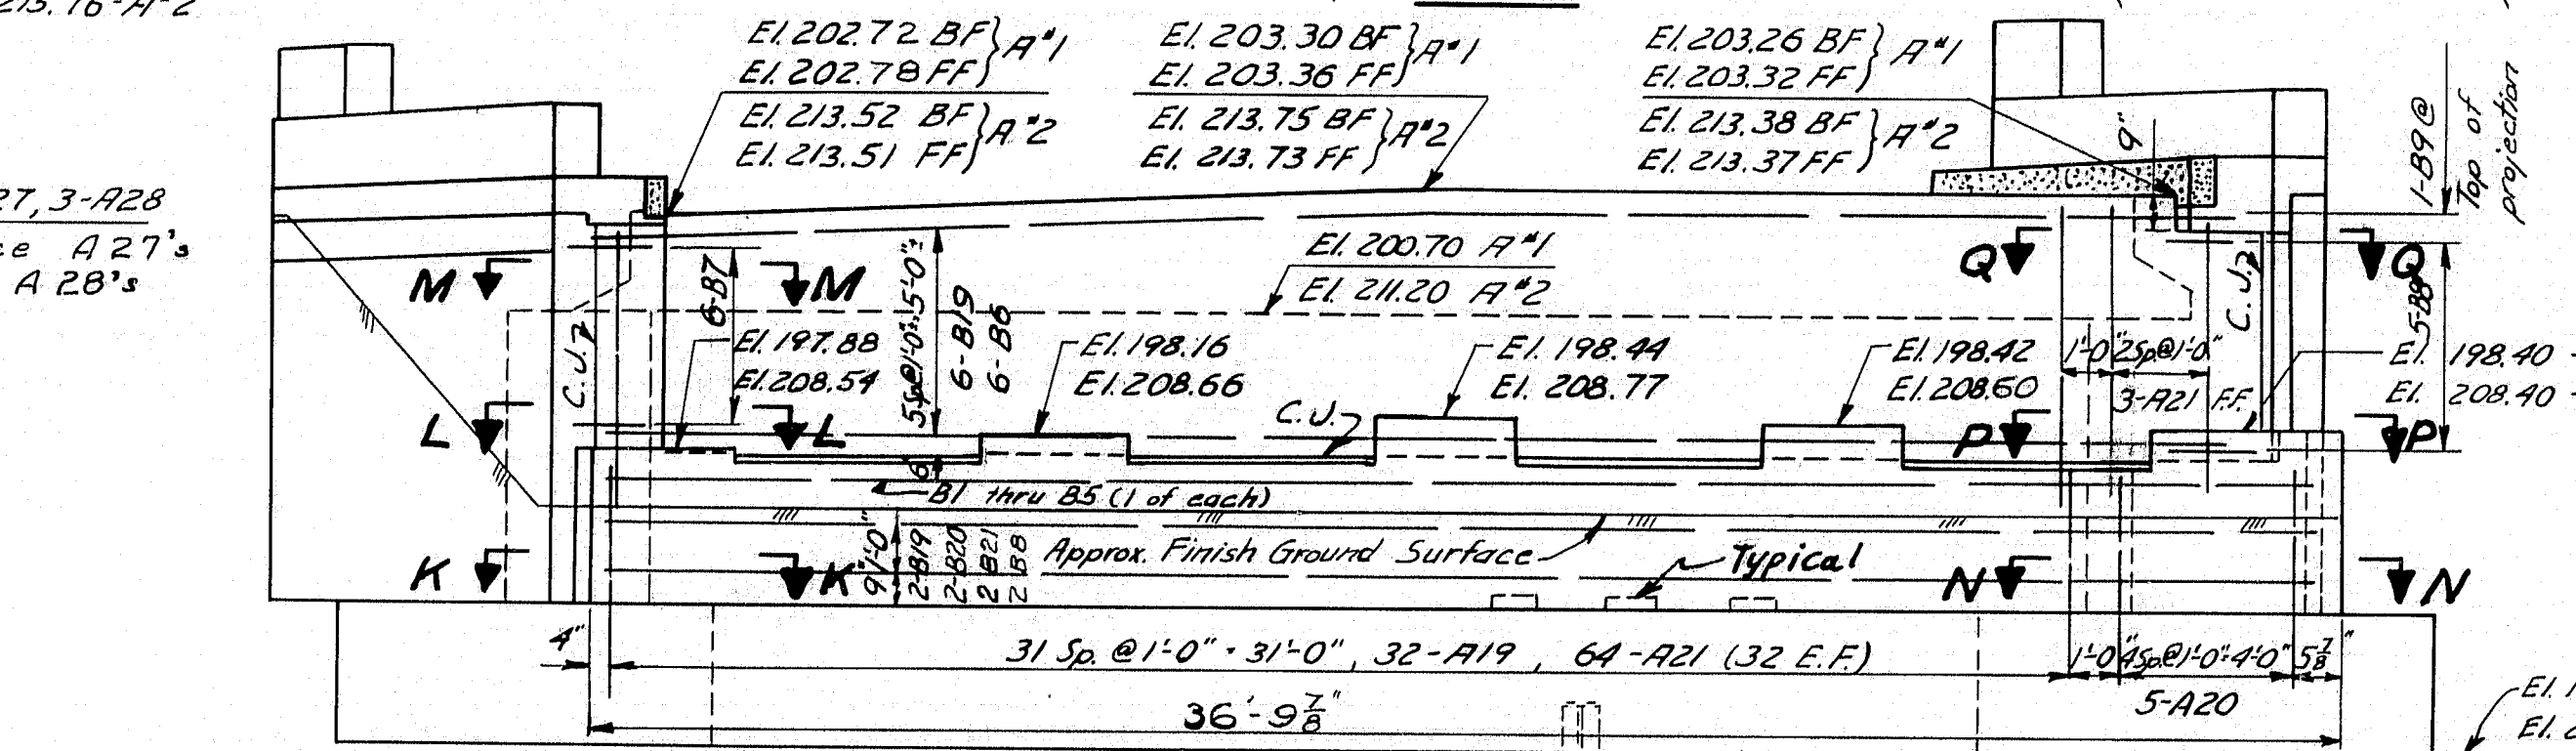 213.16-A-2
El. 202.72 BF
El. 202.78 FF
A#1
El. 213.52 BF
El. 213.51 FF
A#2
El. 203.30 BF
El. 203.36 FF
A#1
El. 213.75 BF
El. 213.73 FF
A#2
El. 203.26 BF
El. 203.32 FF
A#1
El. 213.38 BF
El. 213.37 FF
A#2
9"
1-B9 @
Top of
projection
27, 3-A28
A 27's
A 28's
M
M
6-B7
5Sp@1'-0"=5'-0"
6-B19
6-B6
El. 200.70 A#1
El. 211.20 A#2
Q
Q
C.J.
C.J.
5-B8
El. 197.88
El. 208.54
El. 198.16
El. 208.66
El. 198.44
El. 208.77
El. 198.42
El. 208.60
1'-0"
2Sp@1'-0"
3-A21 F.F.
El. 198.40
El. 208.40
L
L
C.J.
P
P
6"
B1 thru B5 (1 of each)
9"
1'-0"
2-B19
2-B20
2 B21
2 B8
Approx. Finish Ground Surface
Typical
K
K
N
N
4"
31 Sp. @ 1'-0" = 31'-0", 32-A19, 64-A21 (32 E.F.)
1'-0"
4Sp@1'-0"=4'-0"
5 7/8"
5-A20
36'-9 7/8"
El.
El.